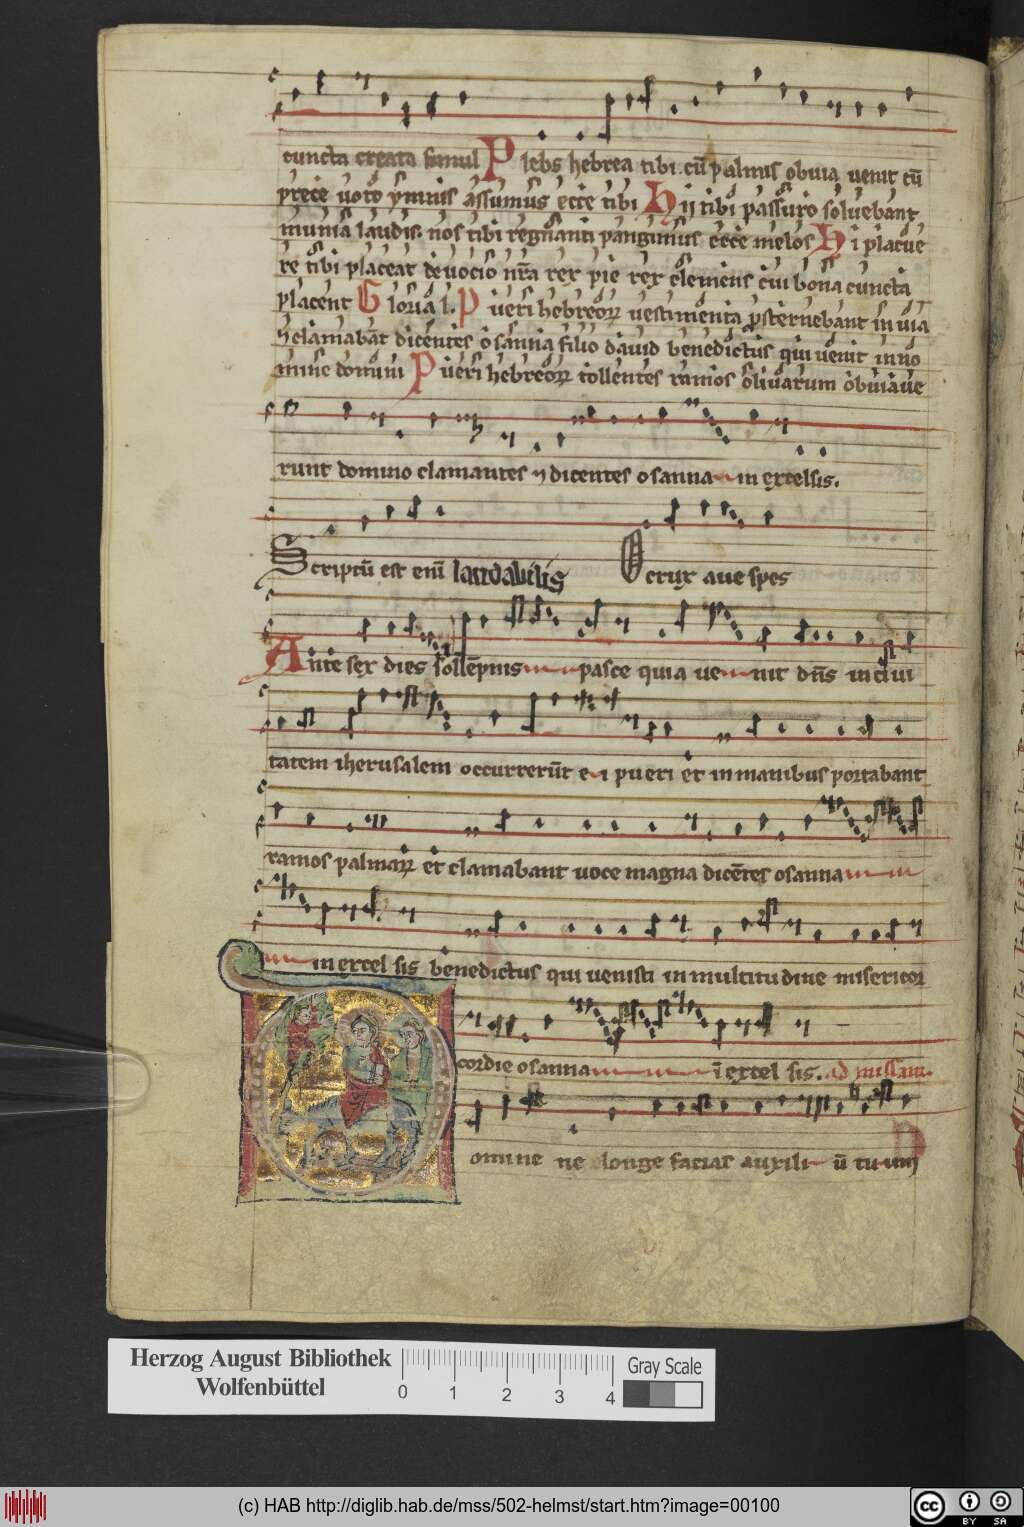 cuncta creata simul Plebs hebrea tibi cū palmis obuia uenit cū
prece uoto ymnis assumus ecce tibi Hij tibi passuro soluebant
munia laudis nos tibi regnanti pangimus ecce melos Hi placue
re tibi placeat deuocio nr̄a rex pie rex clemens cui bona cuncta
placent Gloria l. Pueri hebreoꝝ uestimenta ꝓsternebant in uia
⁊ clamabāt dicentes osanna filio dauid benedictus qui uenit in no
mine domini Pueri hebreoꝝ tollentes ramos oliuarum obuiaue
runt domino clamantes ⁊ dicentes osanna in excelsis.
Scriptū est enī laudabilis O crux aue spes
Ante sex dies sollēpnis pasce quia uenit dn̄s in ciui
tatem iherusalem occurrerūt ei pueri et in manibus portabant
ramos palmaꝝ et clamabant uoce magna dicētes osanna
in excelsis benedictus qui uenisti in multitudine misericor
cordie osanna ī excelsis. ad missam.
Domine ne longe facias auxiliū tuum
Herzog August Bibliothek
Wolfenbüttel
0 1 2 3 4
Gray Scale
(c) HAB http://diglib.hab.de/mss/502-helmst/start.htm?image=00100
cc BY SA